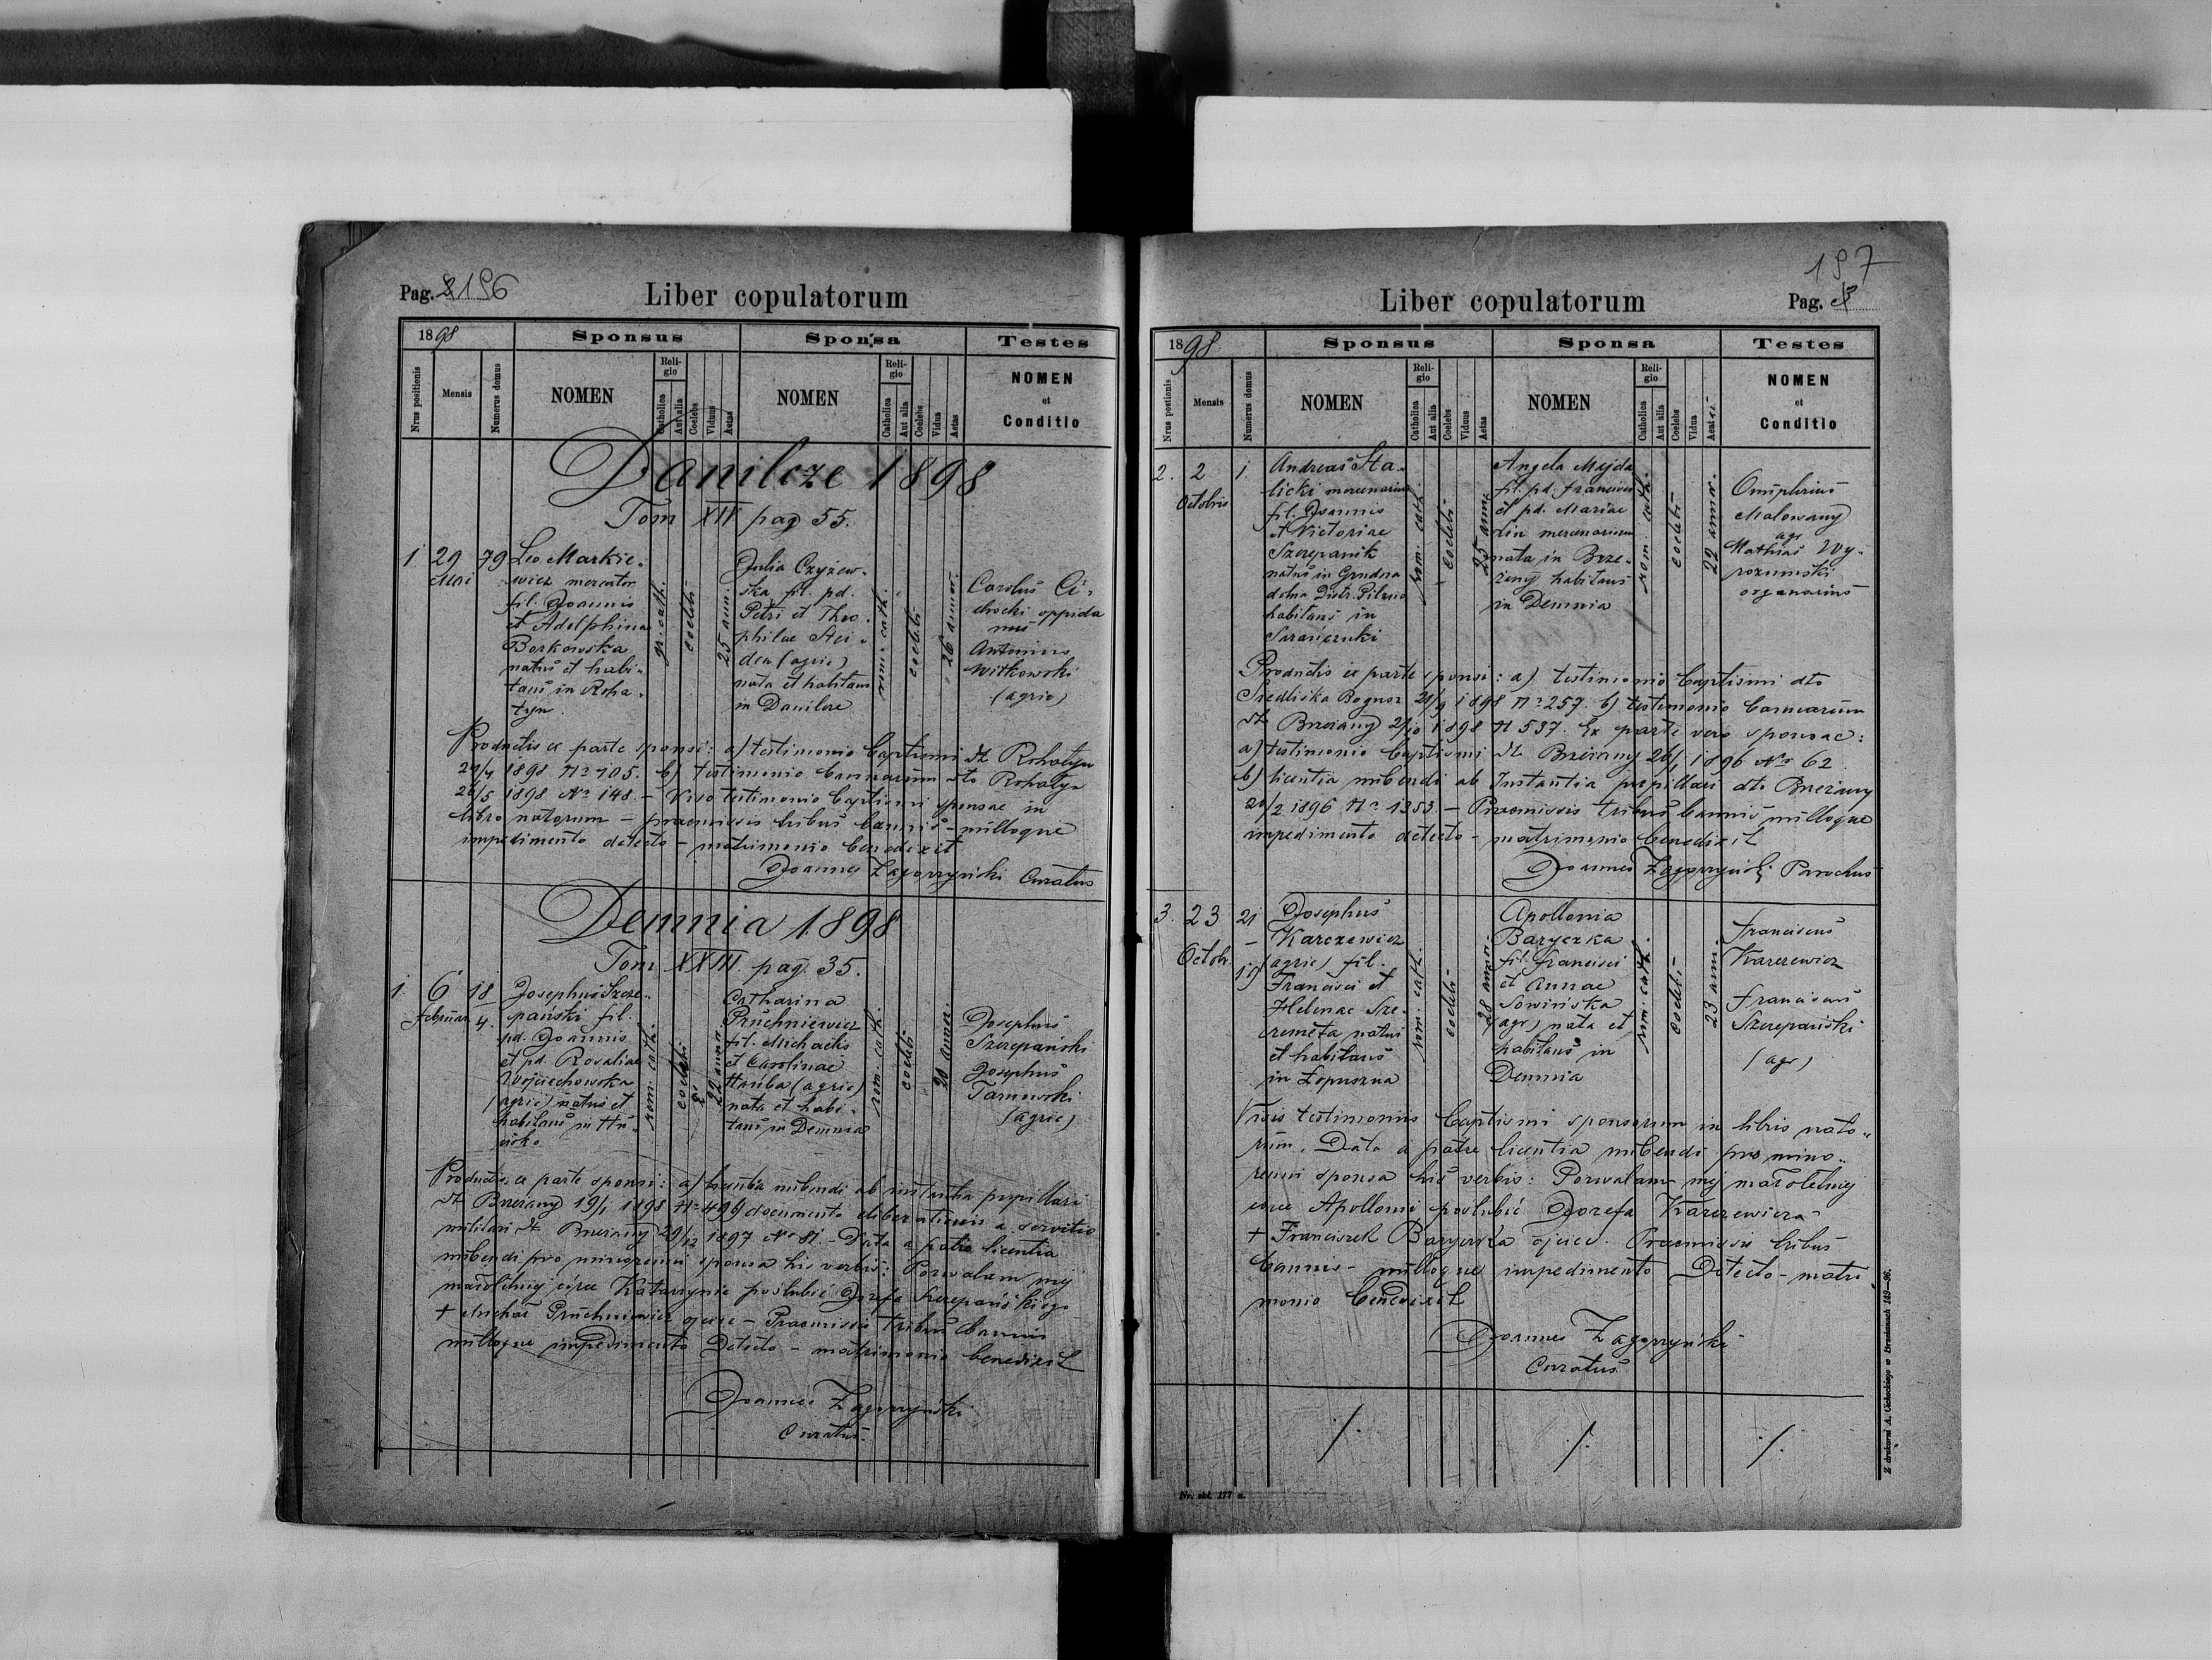 Pag. 2 196
Liber copulatorum
1898
Sponsus
Sponsa
Testes
Nrus positionis
Mensis
Numerus domus
NOMEN
Religio
Catholica
Aut alia
Coelebs
Viduus
Aetas
NOMEN
Religio
Catholica
Aut alia
Coelebs
Vidua
Aetas
NOMEN
et
Conditio
Danilcze 1898
Tom XIV pag 55.
1
29
Mai
79
Leo Markie-
wicz mercator
fil. Joannis
et Adolphina
Borkowska
natus et habi-
tans in Roha-
tyn.
gr. cath.
coelebs
25 ann.
Julia Czyżew-
ska fil. pd.
Petri et Theo-
philae Stei-
den (agric)
nata et habitans
in Danilcze
rom. cath.
coelebs
26 annor.
Carolus Ci-
chocki oppida
nus
Antonius
Witkowski
(agric)
Productis ex parte sponsi: a) testimonio baptismi dt Rohatyn
29/4 1898 No 105. b) testimonio bannorum dto Rohatyn
26/5 1898 No 148. - Viso testimonio baptismi sponsae in
libro natorum - praemissis tribus bannis - nulloque
impedimento detecto - matrimonio benedixit
Joannes Zagorzyński Curatus
Demnia 1898
Tom XXIII. pag. 35.
1
6
Februar.
18
4.
Josephus Szcze-
pański fil.
pd. Joannis
et pd. Rosaliae
Wojciechowska
(agric) natus et
habitans in Hu-
cisko
rom. cath.
coelebs
22 annor
Catharina
Pruchniewicz
fil. Michaelis
et Carolinae
Hauba (agric)
nata et habi-
tans in Demnia
rom. cath.
coelebs
20 annor.
Josephus
Szczepański
Josephus
Tarnowski
(agric)
Productis ex parte sponsi: a) licentia nubendi ab instantia pupillari
dt Brzeżany 19/1 1898 No 499 documento liberationis a servitio
militari dt Brzeżany 29/12 1897 No 81. - Data a patre licentia
nubendi pro minorenni sponsa his verbis: Pozwalam mej
małoletniej córce Katarzynie poślubić Józefa Szczepańskiego
+ Michał Pruchniewicz ojciec - Praemissis tribus bannis
nulloque impedimento Detecto - matrimonio benedixit
Joannes Zagorzyński
Curatus.
197
Liber copulatorum
Pag. 3
1898
Sponsus
Sponsa
Testes
Nrus postionis
Mensis
Numerus domus
NOMEN
Religio
Catholica
Aut alia
Coelebs
Viduus
Aetas
NOMEN
Religio
Catholica
Aut alia
Coelebs
Vidua
Aetas
NOMEN
et
Conditio
2.
2
Octobris
1
Andreas Sta-
licki mercenarius
fil. Joannis
et Victoriae
Szczepanik
natus in Grudna
dolna Distr. Pilzno
habitans in
Sarańczuki
rom. cath.
coelebs
25 anno
Angela Majda
fil. pd. Francisci
et pd. Mariae
Lin mercenarium
nata in Brze-
żany habitans
in Demnia
rom. cath.
coelebs
22 annor.
Onuphrius
Malowany
agr
Mathias Wy-
rozumski
organarius
Productis ex parte sponsi: a) testimonio baptismi dto
Siedliska Bogusz 21/9 1898 No 257. b) testimonio bannorum
dt Brzeżany 2/10 1898 N 537. Ex parte vero sponsae:
a) testimonio baptismi dt Brzeżany 26/1 1896 No 62
b) licentia nubendi ab Instantia pupillari dto Brzeżany
20/2 1896 No 1353. - Praemissis tribus bannis nulloque
impedimento detecto - matrimonio benedixit
Joannes Zagorzyński Parochus
3.
23
Octobr.
21
-
Josephus
Karczewicz
(agric) fil.
Francisci et
Helenae Sze-
remeta natus
et habitans
in Łopuszna
rom. cath.
coelebs
28 annor.
Apollonia
Baryczka
fil. Francisci
et Annae
Sowińska
(agr) nata et
habitans in
Demnia
rom. cath.
coelebs
23 anni.
Franciscus
Karczewicz
Franciscus
Szczepański
(agr)
Visis testimoniis baptismi sponsorum in libris nato-
rum. Data a patre licentia nubendi pro mino-
renni sponsa his verbis: Pozwalam mej małoletniej
córce Apolonii poślubić Józefa Karczewicza
+ Franciszek Baryczka ojciec. Praemissis tribus
bannis - nulloque impedimento Detecto - matri
monio benedixit
Joannes Zagorzyński
Curatus
Nr. skł. 177 a.
Z drukarni A. Cichockiego w Brzeżanach 149—96.